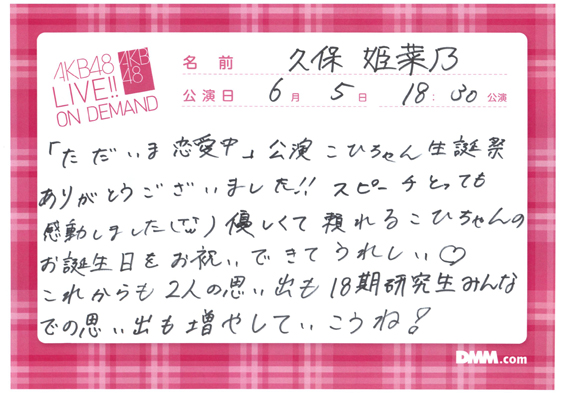 AKB48
LIVE!!
ON DEMAND
AKB
48
名前 久保 姫菜乃
公演日 6月 5日 18:30公演
「ただいま 恋愛中」公演 こひちゃん 生誕祭
ありがとうございました!! スピーチとっても
感動しました 優しくて 頼れるこひちゃんの
お誕生日をお祝いできてうれしい♡
これからも 2人の思い出も 18期研究生みんな
での思い出も増やしていこうね!
DMM.com